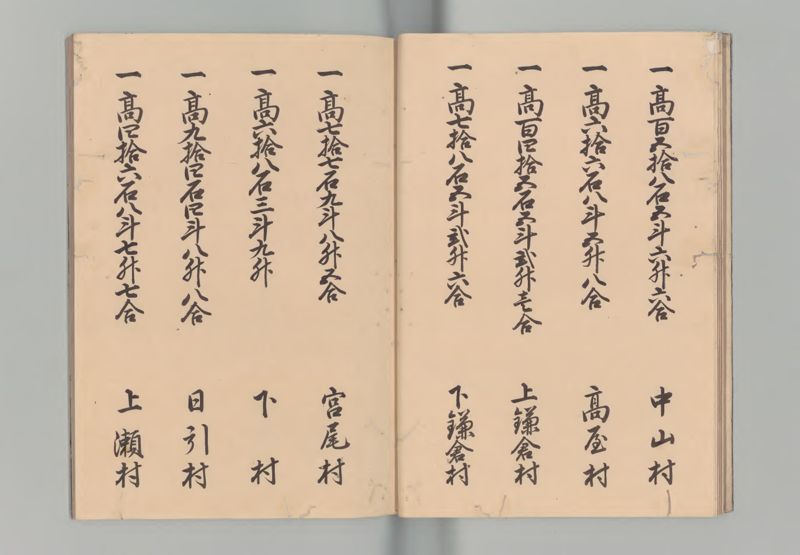 一高百五拾八石五斗六升六合 中山村
一高六拾六石八斗五升八合 高屋村
一高百四拾五石五斗弐升壱合 上鎌倉村
一高七拾八石五斗弐升六合 下鎌倉村
一高七拾七石九斗八升五合 宮尾村
一高六拾八石三斗九升 下村
一高九拾四石四斗八升八合 日引村
一高四拾六石八斗七升七合 上瀬村